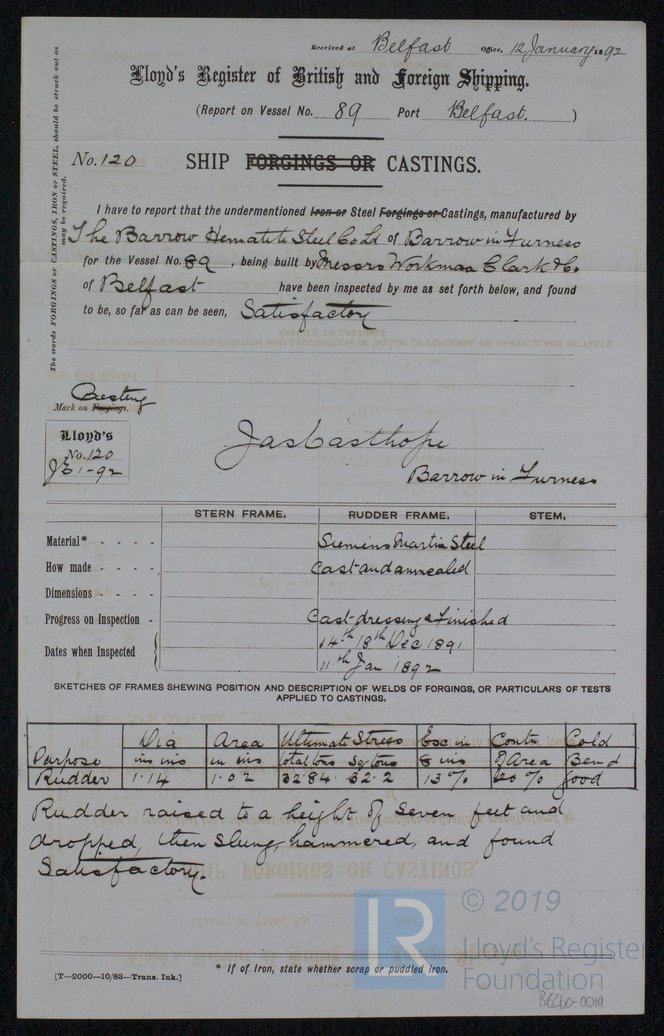 Received at Belfast Office, 12 January 1892
Lloyd's Register of British and Foreign Shipping.
(Report on Vessel No. 89 Port Belfast. )
No. 120 SHIP FORGINGS OR CASTINGS.
The words FORGINGS or CASTINGS, IRON or STEEL, should be struck out as may be required.
I have to report that the undermentioned Iron or Steel Forgings or Castings, manufactured by
The Barrow Hematite Steel Co Ld of Barrow in Furness
for the Vessel No. 89 , being built by Messrs Workman Clark & Co.
of Belfast have been inspected by me as set forth below, and found
to be, so far as can be seen, Satisfactory
Casting
Mark on Forgings.
Lloyd's
No. 120
JE 1-92
Jas Easthope
Barrow in Furness
STERN FRAME. RUDDER FRAME. STEM.
Material* - - - - Siemens Martin Steel
How made - - - - Cast and annealed
Dimensions - - - -
Progress on Inspection - Cast dressing & Finished
Dates when Inspected 14th 18th Dec 1891
11th Jan 1892
SKETCHES OF FRAMES SHEWING POSITION AND DESCRIPTION OF WELDS OF FORGINGS, OR PARTICULARS OF TESTS
APPLIED TO CASTINGS.
Dia Area Ultimate Stress Esc in Contn Cold
Purpose in ins in ins total tons sq tons 8 ins of Area Bend
Rudder 1.14 1.02 32.84 32.2 13 % % good
Rudder raised to a height of seven feet and
dropped, then slung, hammered, and found
Satisfactory.
* If of Iron, state whether scrap or puddled iron.
[T—2000—10/83—Trans. Ink.]
LR
© 2019
Lloyd's Register
Foundation
BEL60-0019